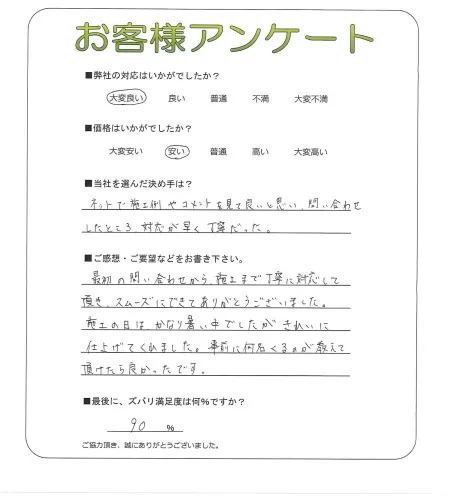 お客様アンケート
■弊社の対応はいかがでしたか？
大変良い 良い 普通 不満 大変不満
■価格はいかがでしたか？
大変安い 安い 普通 高い 大変高い
■当社を選んだ決め手は？
ネットで施工例やコメントを見て良いと思い、問い合わせ
したところ、対応が早く丁寧だった。
■ご感想・ご要望などをお書き下さい。
最初の問い合わせから、施工まで丁寧に対応して
頂き、スムーズにできてありがとうございました。
施工の日は、かなり暑い中でしたがきれいに
仕上げてくれました。事前に何名くるのか教えて
頂けたら良かったです。
■最後に、ズバリ満足度は何%ですか？
90 %
ご協力頂き、誠にありがとうございました。